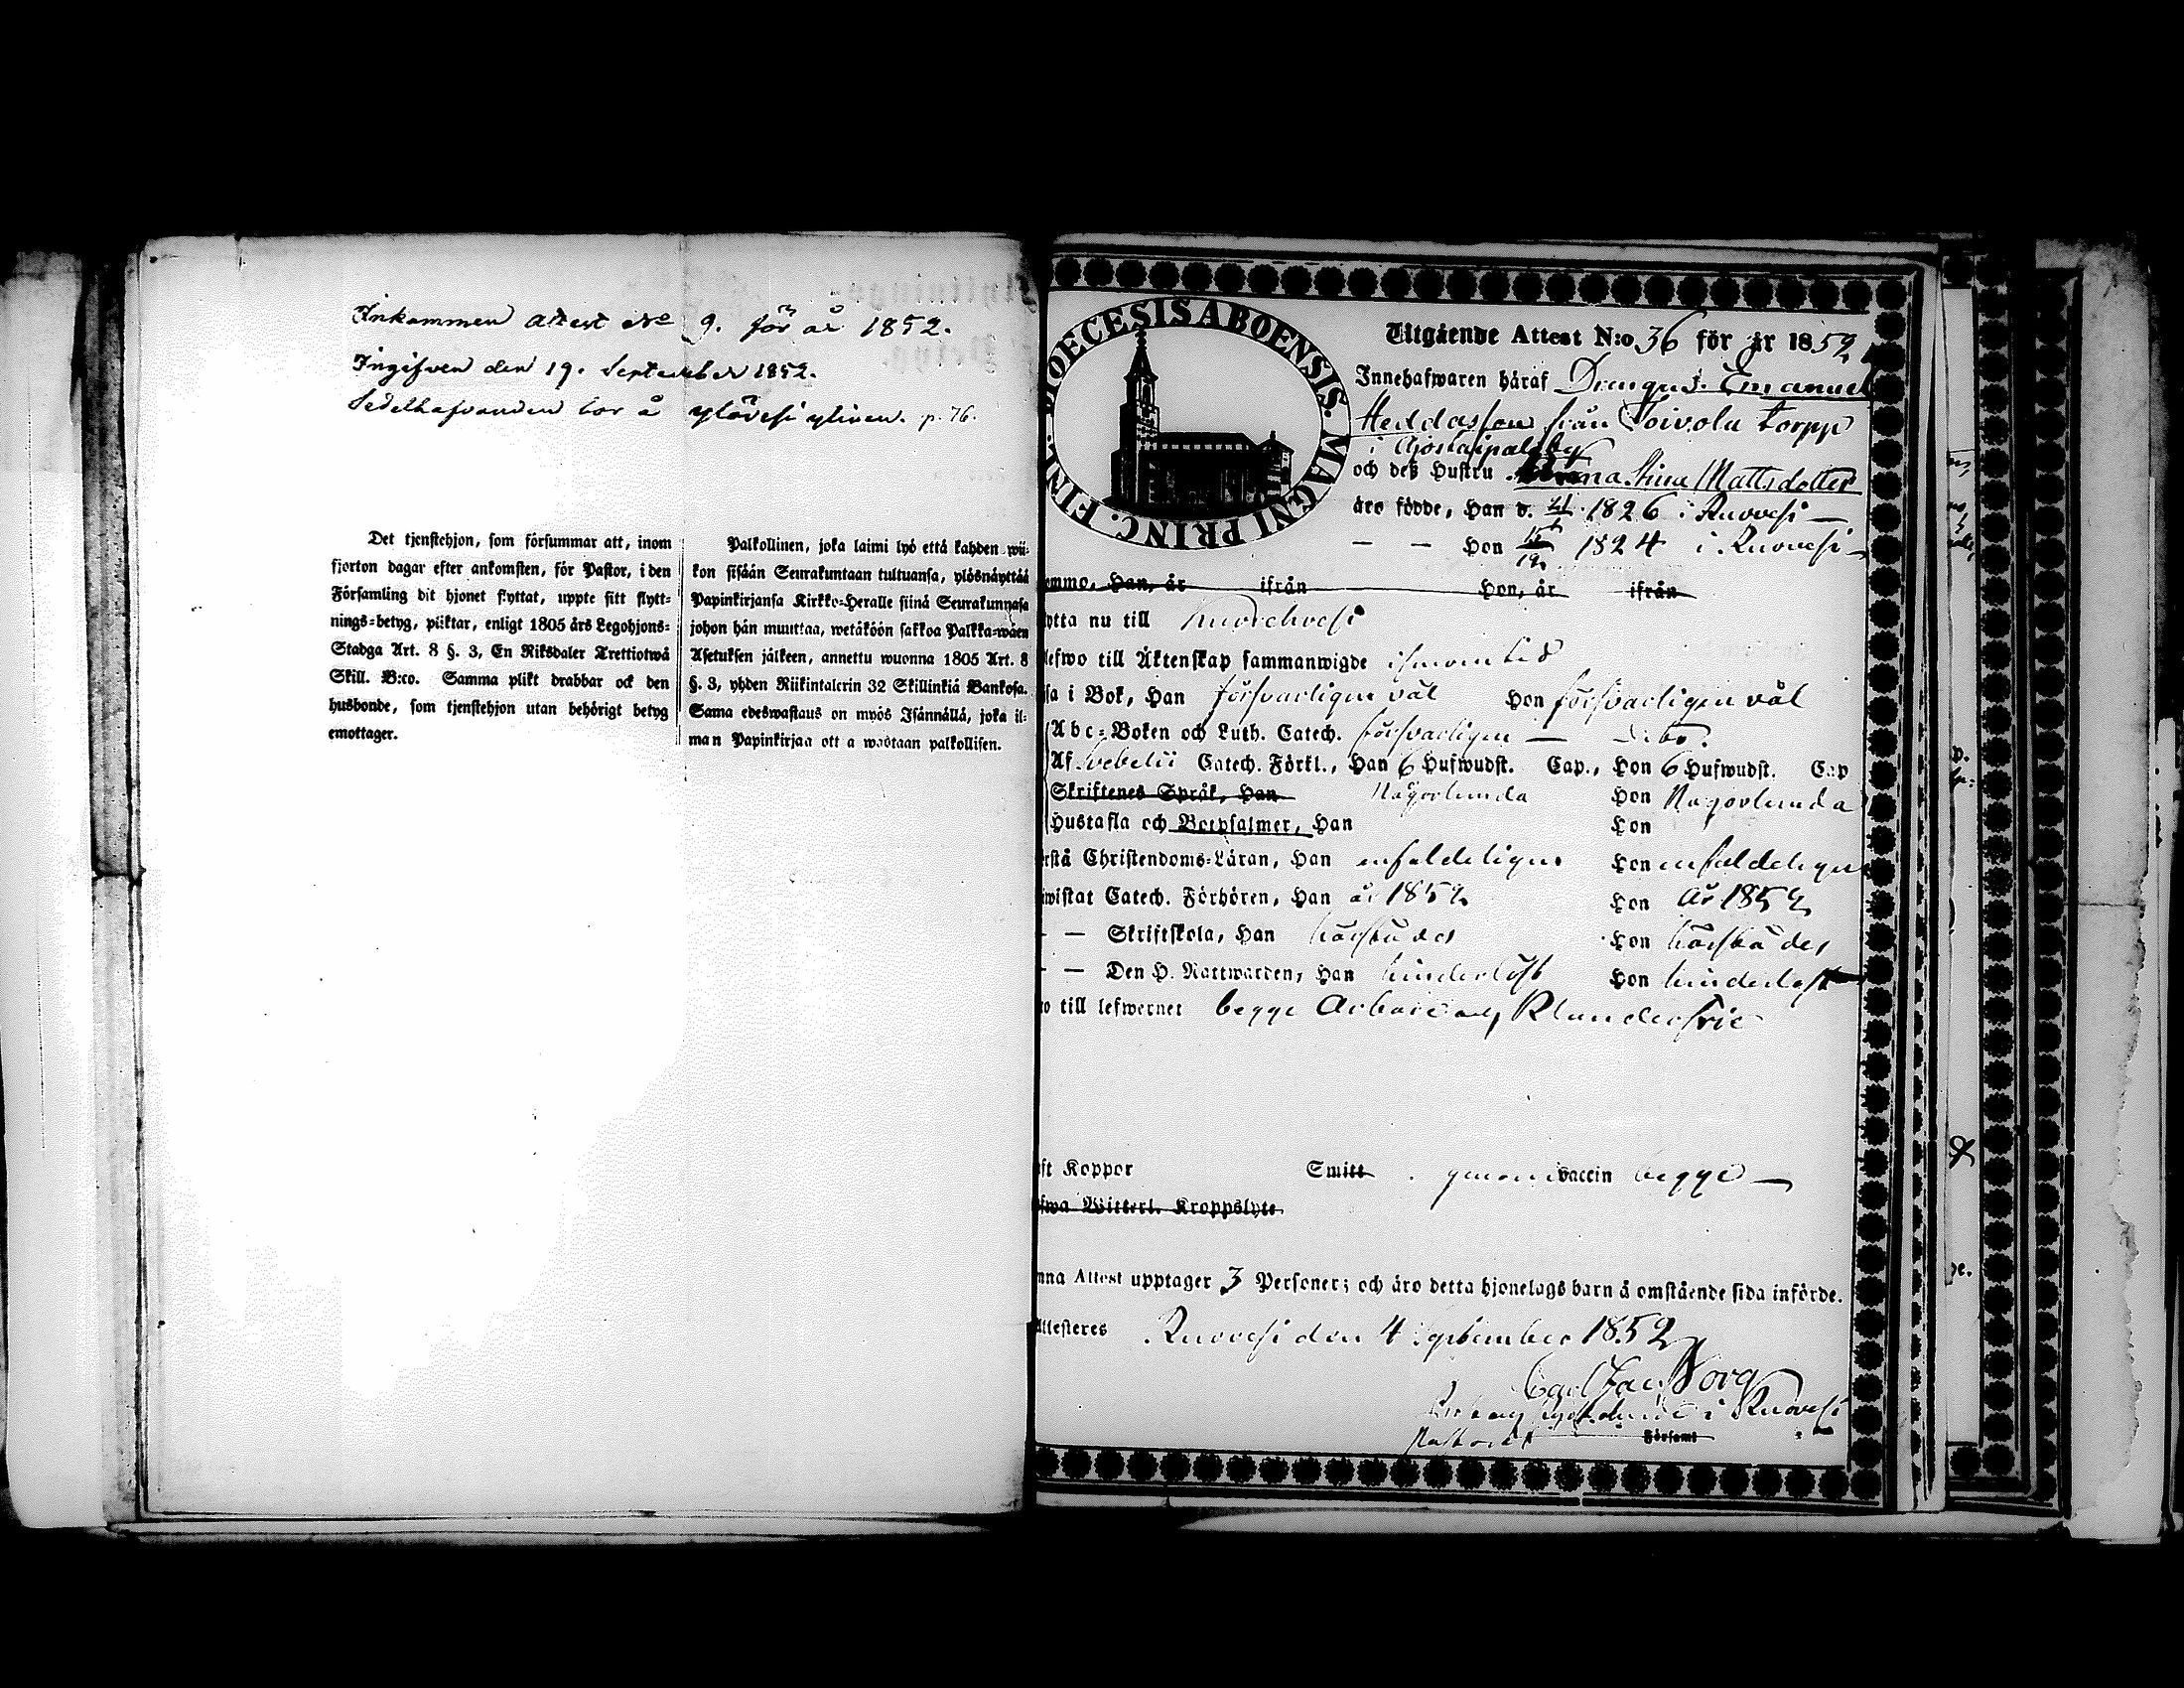 Inkommen attest No 9. för år 1852.
Ingifven den 19. September 1852.
Sedelhafvanden bor å ylövesi ylinen. p. 76.
Det tjenstehjon, som försummar att, inom
fjorton dagar efter ankomsten, för Pastor, i den
Församling dit hjonet flyttat, uppte sitt flytt-
nings-betyg, pliktar, enligt 1805 års Legohjons-
Stadga Art. 8 §. 3, En Riksdaler Trettiotwå
Skill. B:co. Samma plikt drabbar ock den
husbonde, som tjenstehjon utan behörigt betyg
emottager.
Palkollinen, joka laimi lyö että kahden wii-
kon sisään Seurakuntaan tultuansa, ylösnäyttää
Papinkirjansa Kirkko-Heralle siinä Seurakunnasa
johon hän muuttaa, wetäköön sakkoa Palkka-wäen
Asetuksen jälkeen, annettu wuonna 1805 Art. 8
§. 3, yhden Riikintalerin 32 Skillinkiä Bankosa.
Sama edeswastaus on myös Isännällä, joka il-
man Papinkirjaa ott a wastaan palkollisen.
DIOECESIS ABOENSIS. MAGNI PRINC. FINL.
Utgående Attest N:o 36 för år 1852
Innehafwaren häraf Drengen Emanuel
Heddasson från Toivola torpp
i
och dess Hustru Anna Stina Mattsdotter
äro födde, Han d. 1826 i Ruovesi —
— — Hon 1824 i Ruovesi —
komme, Han, år ifrån Hon, år ifrån
flytta nu till Kuorehvesi
lefwo till Äktenskap sammanwigde
läsa i Bok, Han försvarligen väl Hon försvarligen väl
Abc-Boken och Luth. Catech. försvarligen — dito.
Af Svebelii Catech. Förkl., Han 6 Hufwudst. Cap., Hon 6 Hufwudst. Cap
Skriftenes Språk, Han Någorlunda Hon Någorlunda
Hustafla och Botpsalmer, Han Hon
förstå Christendoms-Läran, Han enfaldeligen Hon enfaldeligen
bewistat Catech. Förhören, Han år 1852 Hon år 1852
— — Skriftskola, Han Hon
— — Den H. Nattwarden, Han hinderlöst Hon hinderlöst
till lefwernet begge Klanderfrie
haft Koppor Smitt. genom vaccin begge —
hafwa Witterl. Kroppslyte
Denna Attest upptager 3 Personer; och äro detta hjonelags barn å omstående sida införde.
Attesteres Ruovesi den 4 September 1852
Carl Jac. Borg
i Ruovesi
Pastor Församl